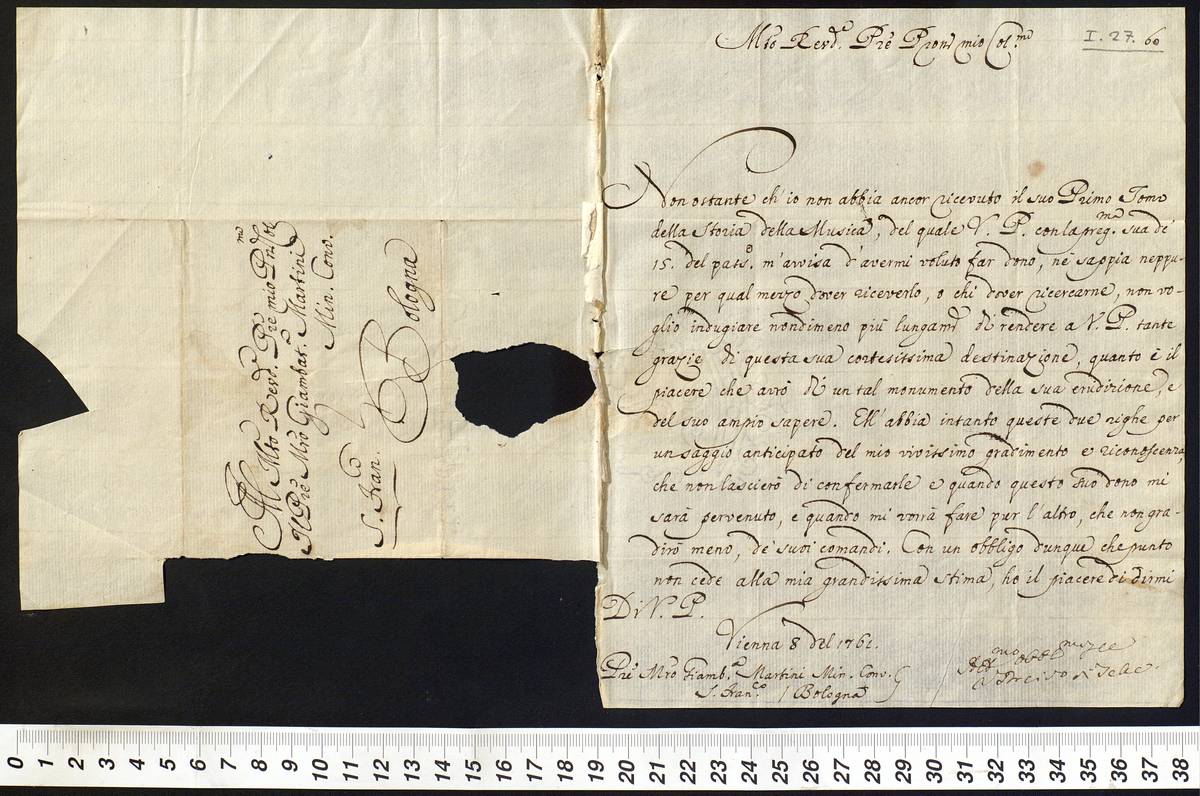 Al Mto Revd.º Pre mio Pn Col.mo
Il Pre Mro Giambat.ª Martini
Min. Conv.
S. Fran.co Bologna
Mto Revd.º Pre Pron mio Col.mo
I. 27. 60
Non ostante ch'io non abbia ancor ricevuto il suo Primo Tomo
della Storia della Musica, del quale V. P. con la preg.ma sua de'
15. del pass.º m'avvisa d'avermi voluto far dono, nè sappia neppu-
re per qual mezzo dover riceverlo, o chi dover ricercarne, non vo-
glio indugiare nondimeno più lungamte di rendere a V. P. tante
grazie di questa sua cortesissima destinazione, quanto è il
piacere che avrò di un tal monumento della sua erudizione, e
del suo ampio sapere. Ell'abbia intanto queste due righe per
un saggio anticipato del mio vivissimo gradimento e riconoscenza,
che non lascierò di confermarle e quando questo suo dono mi
sarà pervenuto, e quando mi vorrà fare pur l'altro, che non gra-
dirò meno, de' suoi comandi. Con un obbligo dunque che punto
non cede alla mia grandissima stima, ho il piacere di dirmi
Di V. P.
Vienna 8 del 1761.
Pre Mro Giamb.ª Martini Min. Conv.
S. Fran.co / Bologna
0 1 2 3 4 5 6 7 8 9 10 11 12 13 14 15 16 17 18 19 20 21 22 23 24 25 26 27 28 29 30 31 32 33 34 35 36 37 38